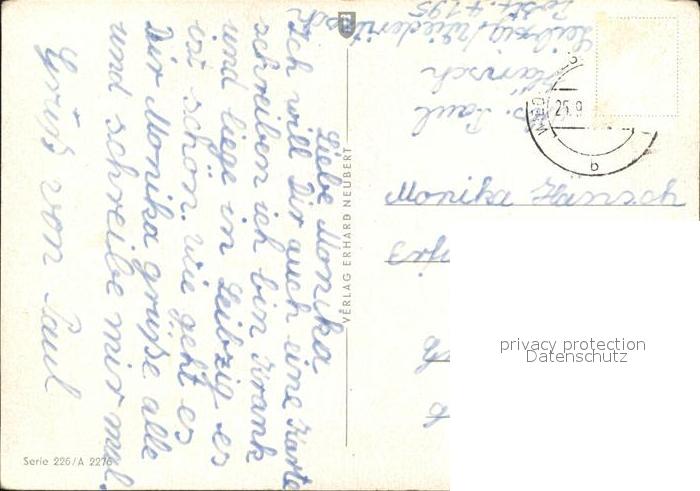 Liebe Monika
Ich will Dir auch eine Karte
schreiben ich bin Krank
und liege in Leibzig es
ist schön. Wie geht es
Dir Monika grüße alle
und schreibe mir mal.
Gruß von Paul
VERLAG ERHARD NEUBERT
Serie 226/A 2276
Paul
Leibzig/Wiederitzsch
Postf. 4195
25.9
b
Monika
privacy protection
Datenschutz